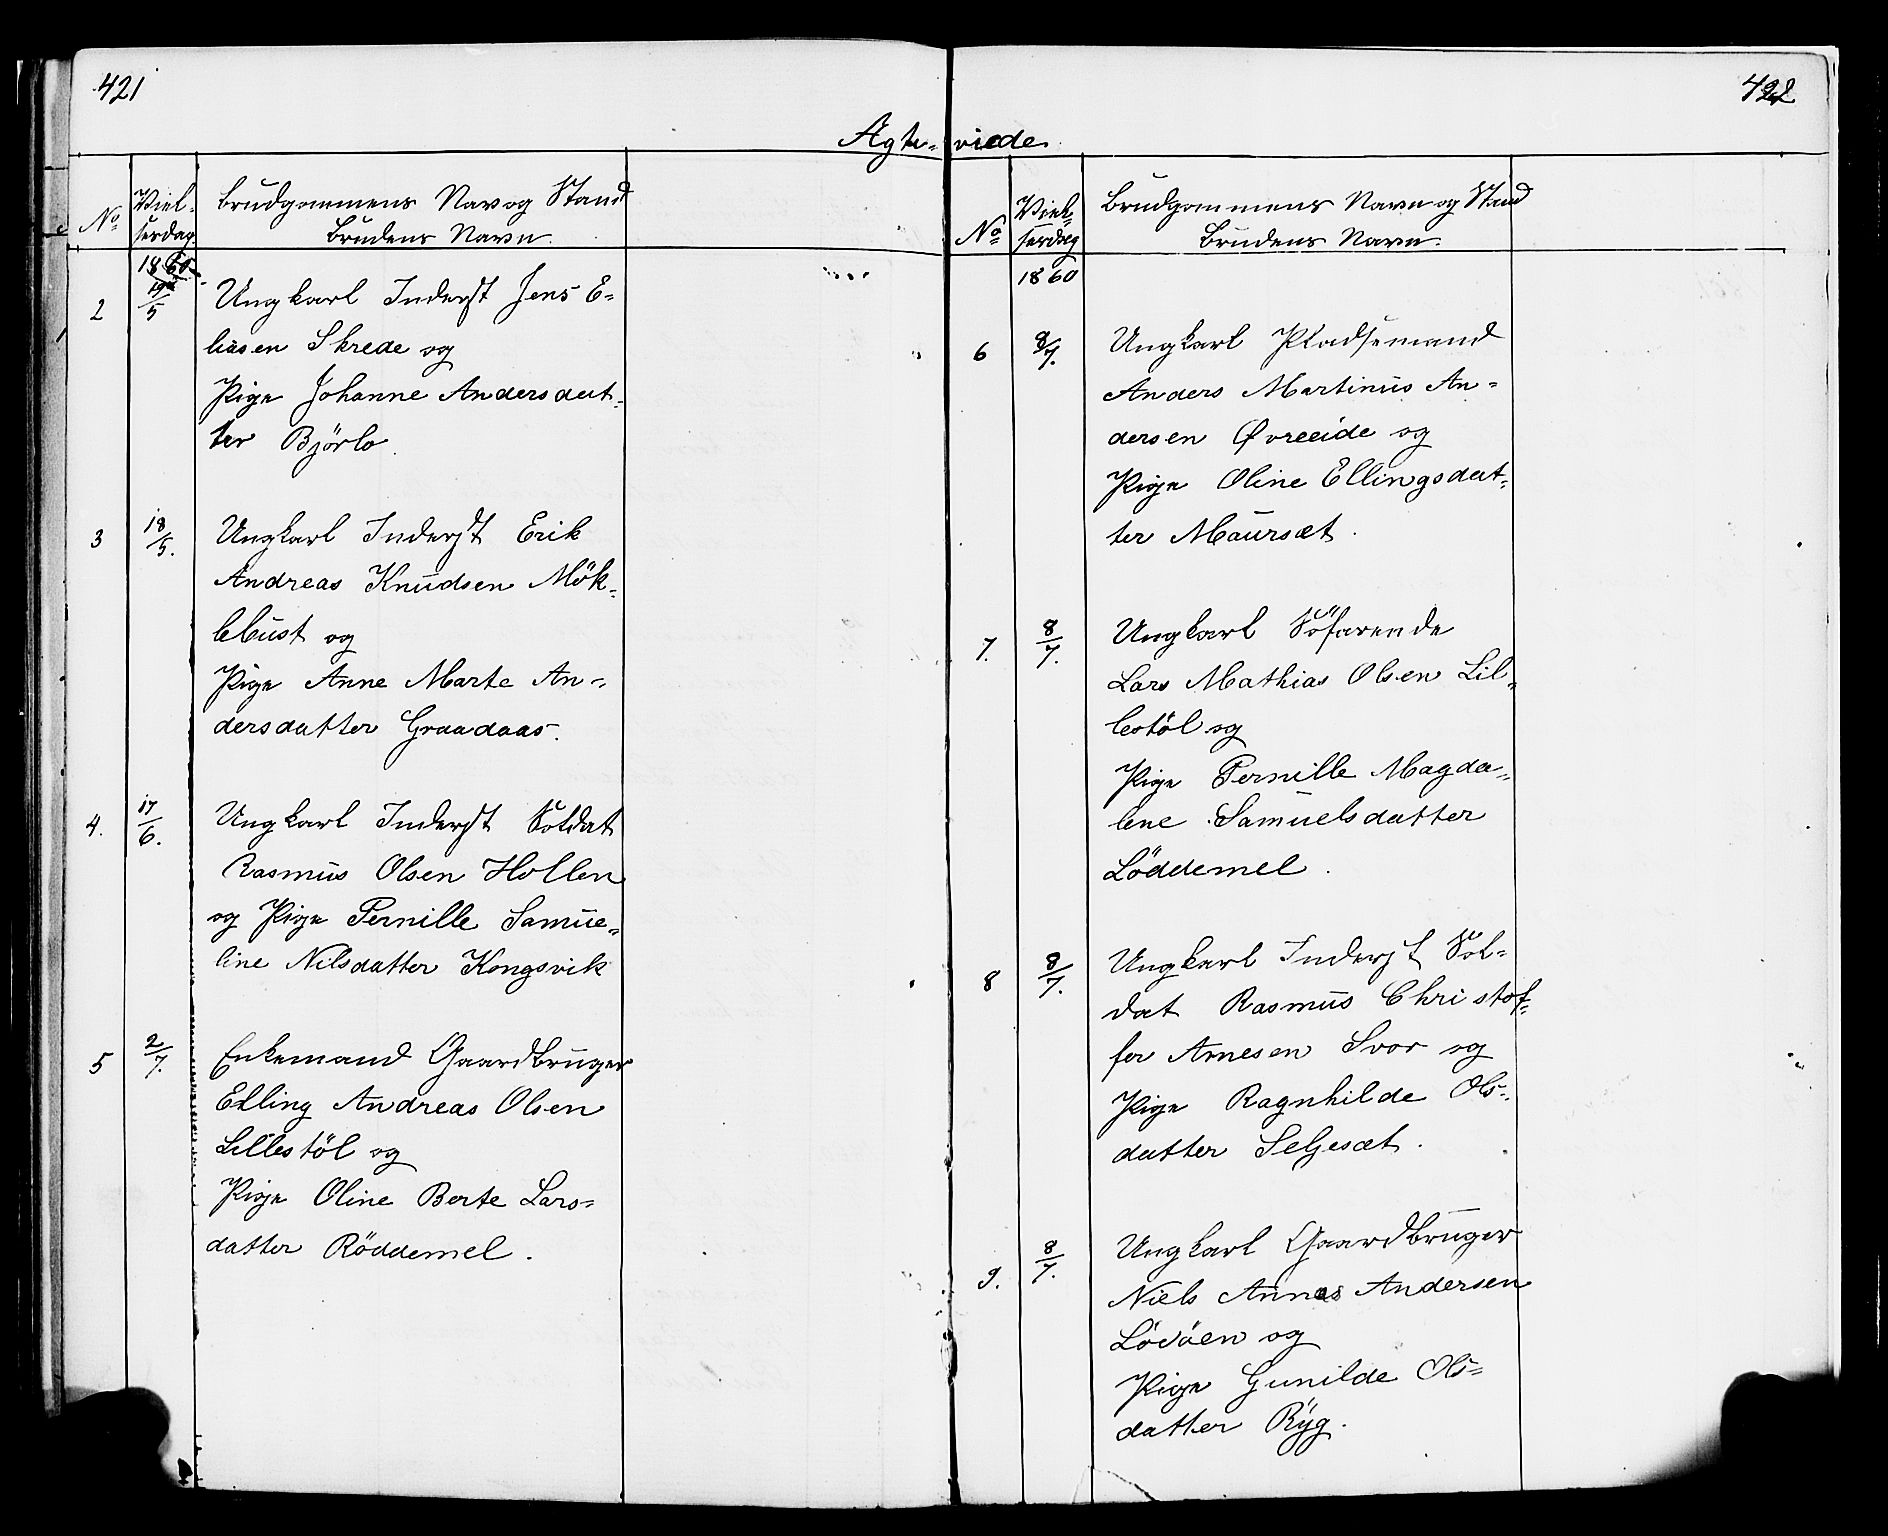 421
Agte-
No
Viel-
sesdag
Brudgommens Nav og Stand
Brudens Navn
1860
2
19/5
Ungkarl Inderst Jens E-
liasen Skrede og
Pige Johanne Andersdat-
ter Björlo.
3
18/5.
Ungkarl Inderst Erik
Andreas Knudsen Mök-
lebust og
Pige Anne Marte An-
dersdatter Graadaas.
4.
17/6.
Ungkarl Inderst Soldat
Rasmus Olsen Hollen
og Pige Pernille Samue-
line Nilsdatter Kongsvik
5
2/7.
Enkemand Gaardbruger
Elling Andreas Olsen
Lillestöl og
Pige Oline Berte Lars-
datter Röddemel.
422
viede
No
Viel-
sesdag
Brudgommens Navn og Stand
Brudens Navn.
1860
6
8/7.
Ungkarl Pladsemand
Anders Martinus An-
dersen Øvreeide og
Pige Oline Ellingsdat-
ter Maurset.
7.
8/7.
Ungkarl Söfarende
Lars Mathias Olsen Lil-
lestöl og
Pige Pernille Magda-
lene Samuelsdatter
Löddemel.
8
8/7.
Ungkarl Inderst Sol-
dat Rasmus Christof-
fer Arnesen Svor og
Pige Ragnhilde Ols-
datter Seljeset.
9.
8/7.
Ungkarl Gaardbruger
Niels Andersen
Lödöen og
Pige Gunilde Ols-
datter Ryg.